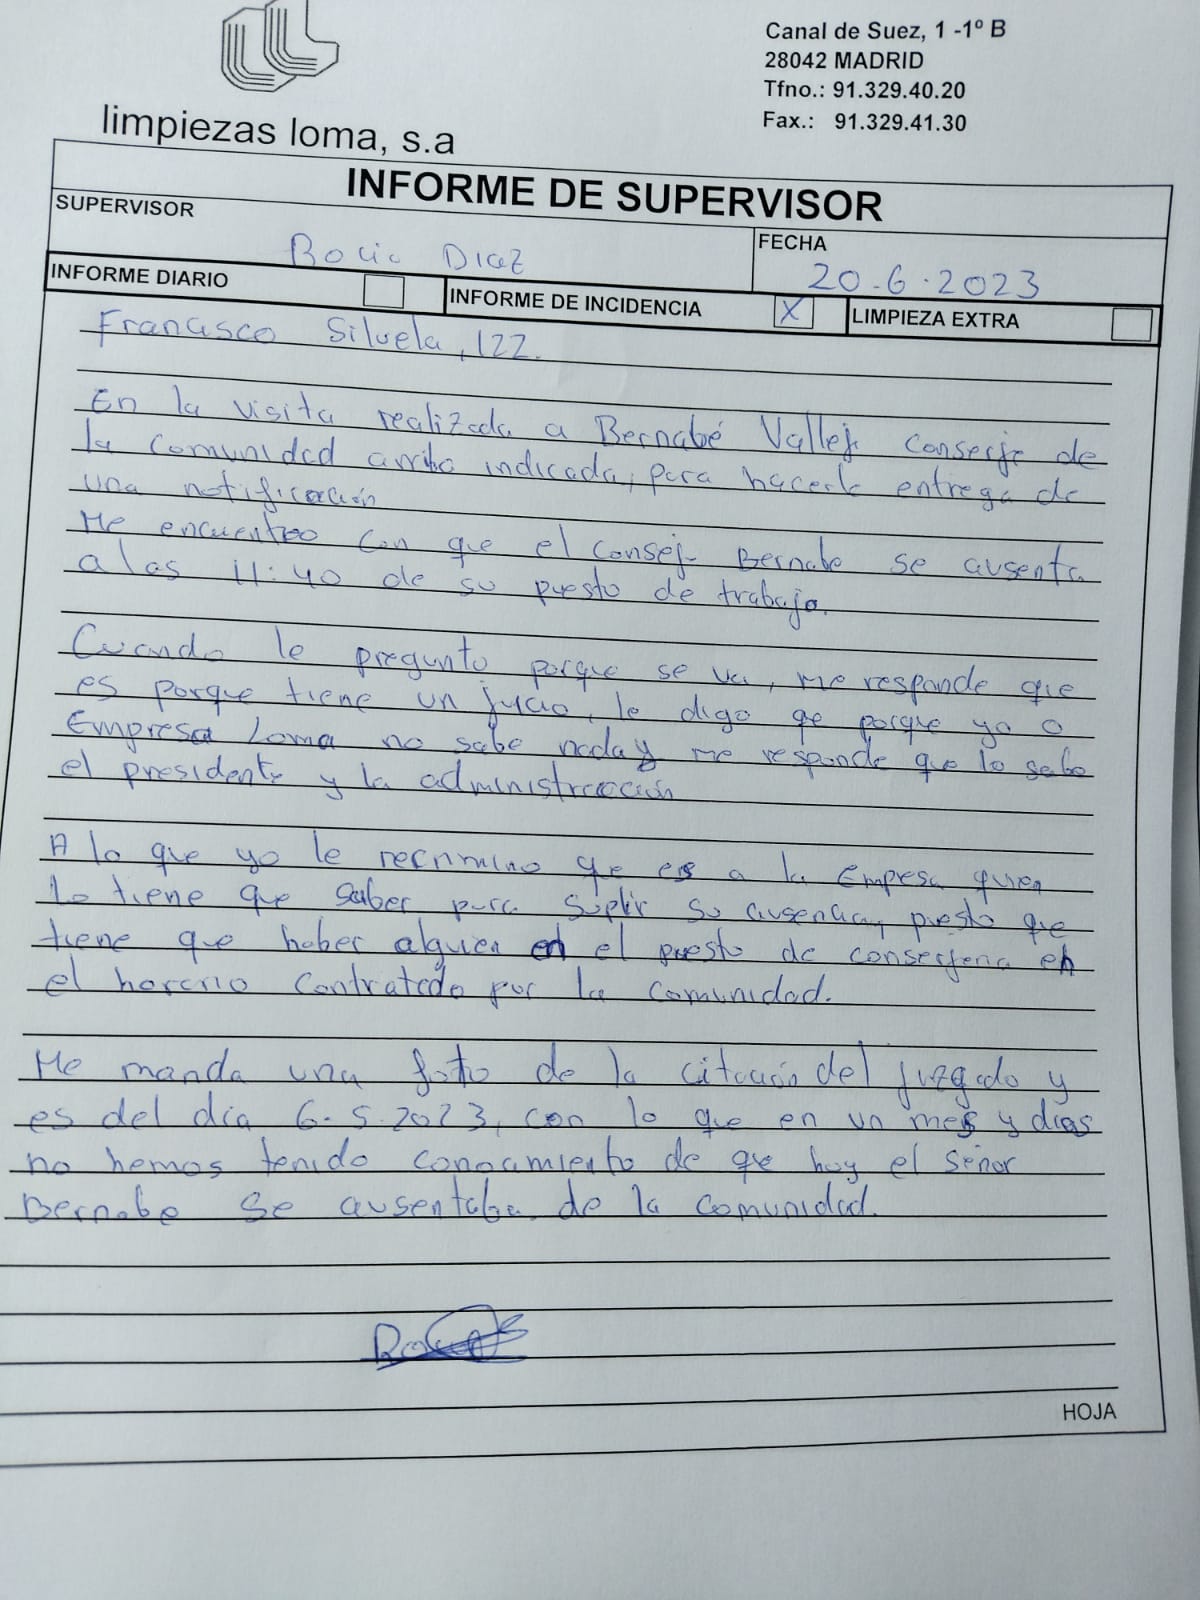 Canal de Suez, 1 -1º B
28042 MADRID
Tfno.: 91.329.40.20
Fax.: 91.329.41.30
limpiezas loma, s.a
INFORME DE SUPERVISOR
SUPERVISOR
Rocio Diaz
FECHA
20-6-2023
INFORME DIARIO
INFORME DE INCIDENCIA X
LIMPIEZA EXTRA
Francisco Silvela, 122.
En la visita realizada a Bernabé Vallej conserje de
la comunidad arriba indicada, para hacerle entrega de
una notificación
Me encuentro con que el consej Bernabe se ausenta
a las 11:40 de su puesto de trabajo.
Cuando le pregunto porque se va, me responde que
es porque tiene un jucio, le digo qe porque yo o
Empresa Loma no sabe nada y me responde que lo sabe
el presidente y la administracción
A lo que yo le recrimino que es a la Empresa quien
lo tiene que saber para suplir su ausencia, puesto que
tiene que haber alguien en el puesto de conserjeria en
el horario contratado por la comunidad.
Me manda una foto de la citación del juzgado y
es del día 6-5-2023, con lo que en un mes y dias
no hemos tenido conocimiento de que hoy el señor
Bernabe se ausentaba de la comunidad.
HOJA